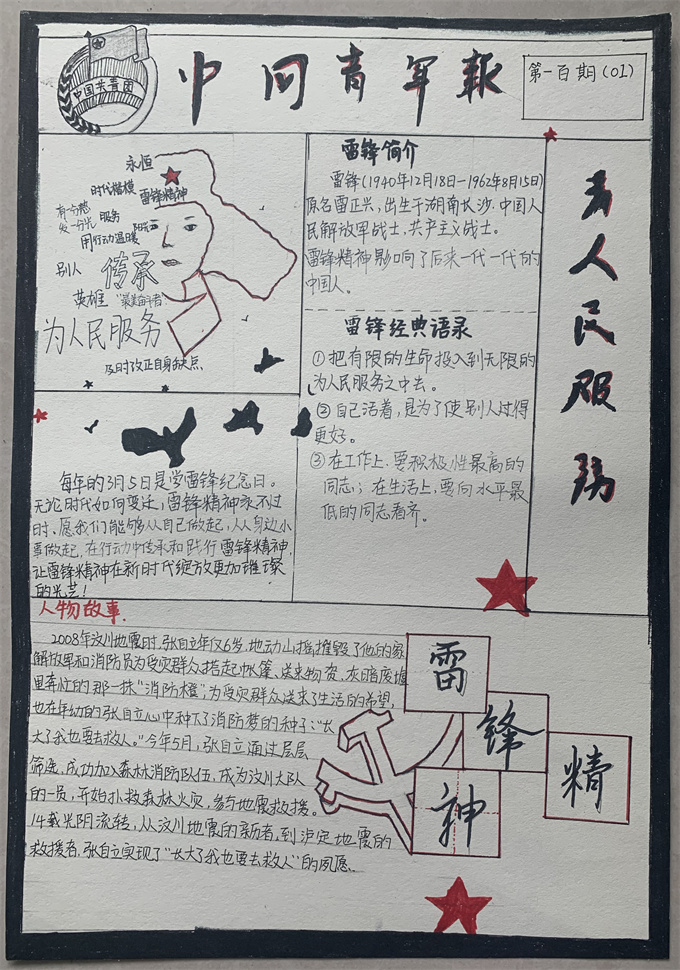 中国共青团
中国青年報
第一百期(01)
永恒
时代楷模
雷锋精神
有一分热
发一分光
服务
用行动温暖
别人
传承
英雄
"最美奋斗者"
为人民服务
及时改正自身缺点
雷锋简介
雷锋(1940年12月18日-1962年8月15日)
原名雷正兴,出生于湖南长沙.中国人
民解放军战士,共产主义战士。
雷锋精神影响了后来一代一代的
中国人。
雷锋经典语录
①把有限的生命投入到无限的
为人民服务之中去。
②自己活着,是为了使别人过得
更好。
③在工作上,要积极性最高的
同志;在生活上,要向水平最
低的同志看齐。
为人民服务
每年的3月5日是学雷锋纪念日。
无论时代如何变迁,雷锋精神永不过
时.愿我们能够从自己做起,从身边小
事做起,在行动中传承和践行雷锋精神,
让雷锋精神在新时代绽放更加璀璨
的光芒!
人物故事.
2008年汶川地震时,张自立年仅6岁,地动山摇摧毁了他的家
解放军和消防员为受灾群众搭起帐篷、送来物资,灰暗废墟
里奔忙的那一抹"消防橙",为受灾群众送来了生活的希望,
也在年幼的张自立心中种下了消防梦的种子:"长
大了我也要去救人。"今年5月,张自立通过层层
筛选,成功加入森林消防队伍,成为汶川大队
的一员,开始扑救森林火灾,参与地震救援。
14载光阴流转,从汶川地震的亲历者,到泸定地震的
救援者,张自立实现了"长大了我也要去救人"的夙愿.
雷
锋
精
神